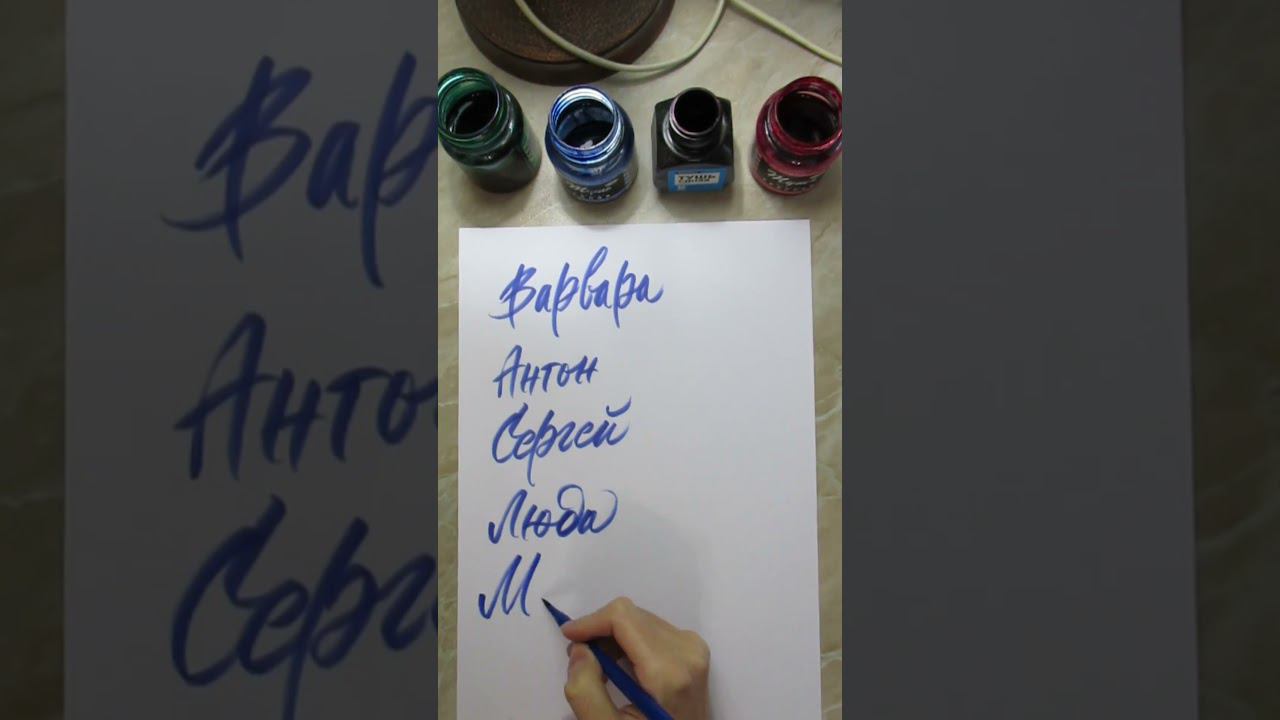 ТУШЬ
Варвара
Антон
Сергей
Люда
М